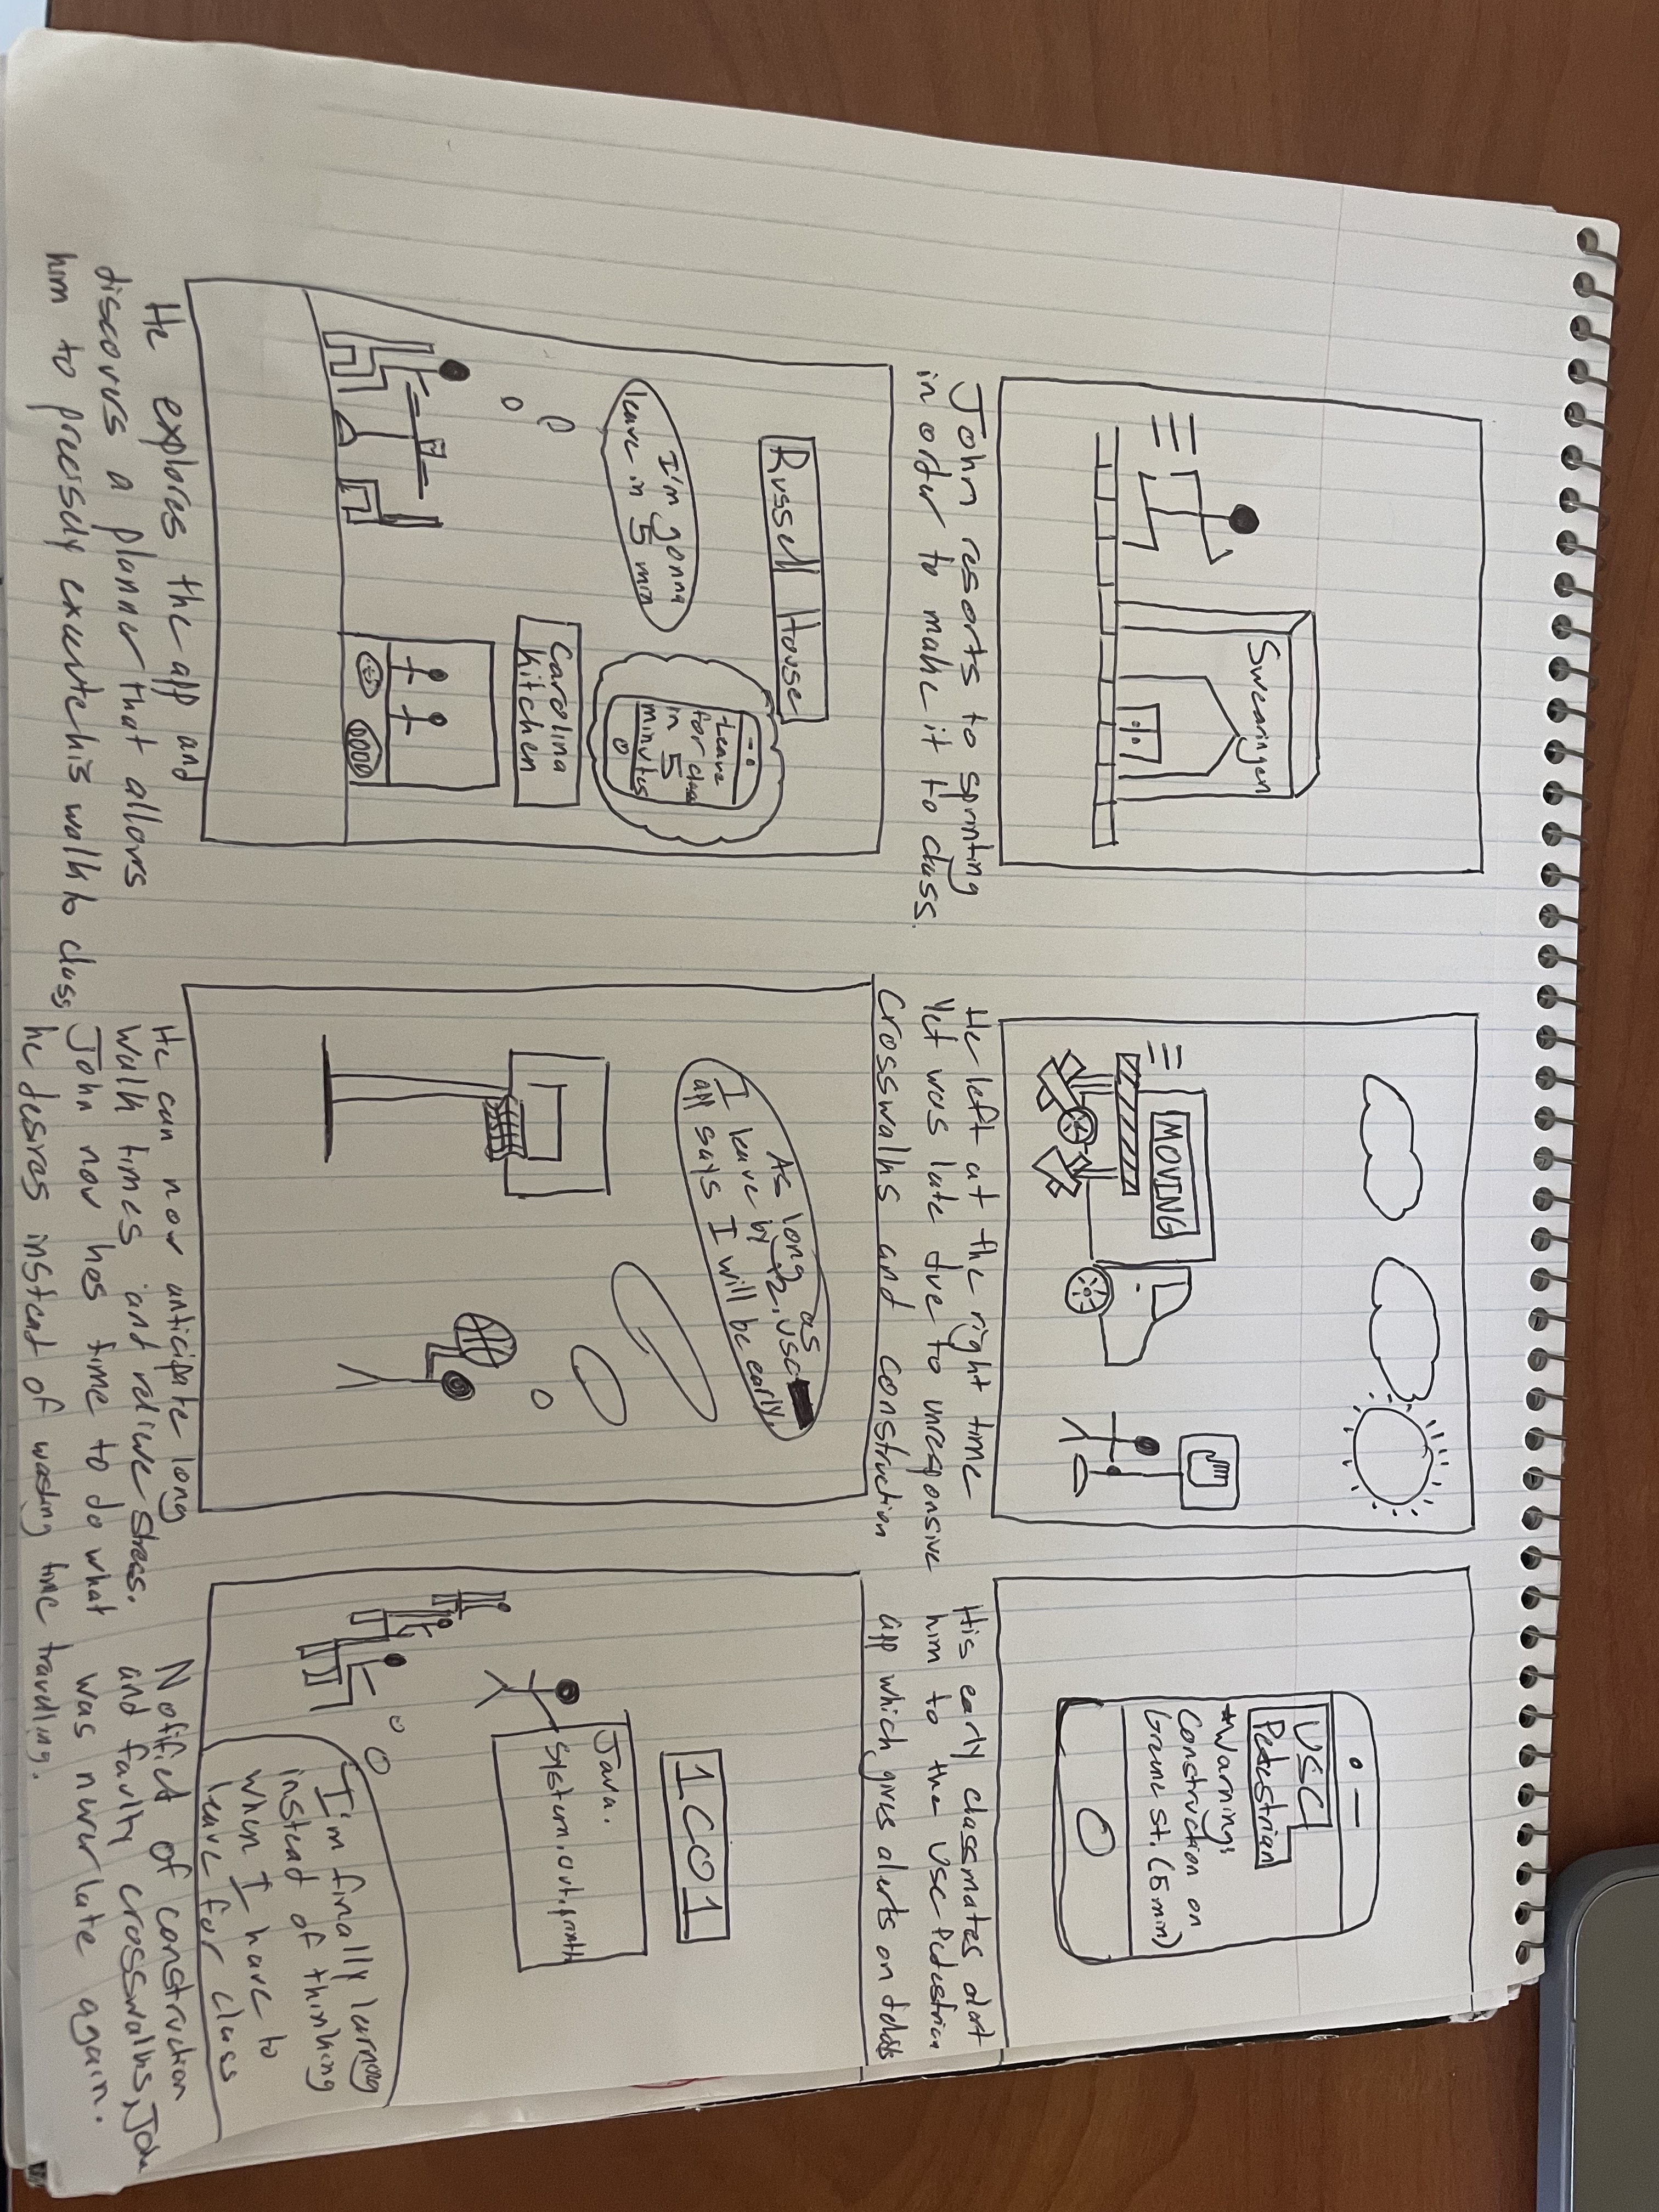 Swearingen
John resorts to sprinting
in order to make it to class.
MOVING
He left at the right time
Yet was late due to unresponsive
crosswalks and construction
USC
Pedestrian
*Warning:
Construction on
Greene st. (5min)
His early classmates alert
him to the USC Pedestrian
app which gives alerts on
Russell House
I'm gonna
leave in 5 min
Leave
for class
in 5
minutes
Carolina
Kitchen
He explores the app and
discovers a planner that allows
him to precisely execute his walk to class.
As long as
I leave by
app says I will be early
He can now anticipate long
walk times and relieve stress.
John now has time to do what
he desires instead of wasting time travelling.
1C01
Java.
System.out.println
I'm finally learning
instead of thinking
when I have to
leave for class
Notified of construction
and faulty crosswalks, John
was never late again.